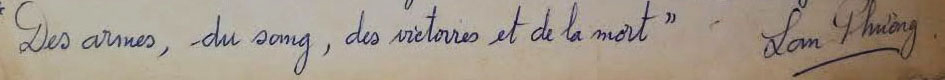 "Des armes, du sang, des victoires et de la mort" - Lan Phương